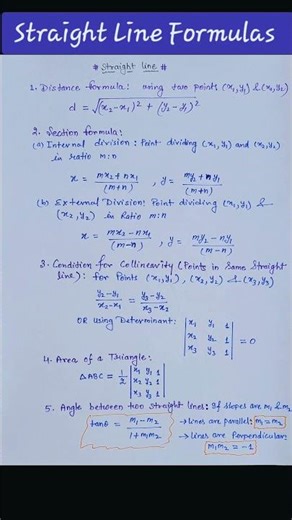 Straight Line Formulas
# Straight line #
1. Distance formula: using two points (x₁,y₁) & (x₂,y₂)
d = √(x₂-x₁)² + (y₂-y₁)²
2. Section formula:
(a) Internal division: Point dividing (x₁,y₁) and (x₂,y₂)
in ratio m:n
x = (mx₂+nx₁)/(m+n) , y = (my₂+ny₁)/(m+n)
(b) External Division: Point dividing (x₁,y₁) &
(x₂,y₂) in Ratio m:n
x = (mx₂-nx₁)/(m-n) , y = (my₂-ny₁)/(m-n)
3. Condition for Collinearity (Points in Same Straight
line): for Points (x₁,y₁), (x₂,y₂) & (x₃,y₃)
(y₂-y₁)/(x₂-x₁) = (y₃-y₂)/(x₃-x₂)
OR Using Determinant: |x₁ y₁ 1|
|x₂ y₂ 1| = 0
|x₃ y₃ 1|
4. Area of a Triangle:
△ABC = 1/2 |x₁ y₁ 1|
|x₂ y₂ 1|
|x₃ y₃ 1|
5. Angle between two straight lines: If slopes are m₁ & m₂
tanθ = (m₁-m₂)/(1+m₁m₂) → lines are parallel: m₁=m₂
→ lines are Perpendicular:
m₁m₂ = -1